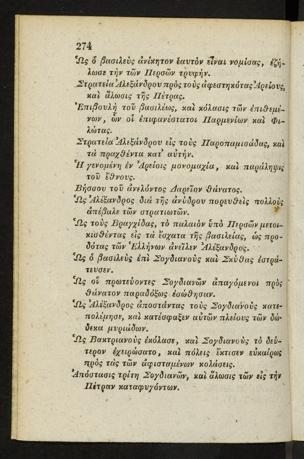 274
Ὡς ὁ βασιλεὺς ἀνίκητον ἑαυτὸν εἶναι νομίσας, ἐζή-
λωσε τὴν τῶν Περσῶν τρυφήν.
Στρατεία Ἀλεξάνδρου πρὸς τοὺς ἀφεστηκότας Ἀρείους,
καὶ ἅλωσις τῆς Πέτρας.
Ἐπιβουλὴ τοῦ βασιλέως, καὶ κόλασις τῶν ἐπιθεμέ-
νων, ὧν οἱ ἐπιφανέστατοι Παρμενίων καὶ Φι-
λώτας.
Στρατεία Ἀλεξάνδρου εἰς τοὺς Παροπαμισάδας, καὶ
τὰ πραχθέντα κατ' αὐτήν.
Ἡ γενομένη ἐν Ἀρείοις μονομαχία, καὶ παράληψις
τοῦ ἔθνους.
Βήσσου τοῦ ἀνελόντος Δαρεῖον θάνατος.
Ὡς Ἀλέξανδρος διὰ τῆς ἀνύδρου πορευθεὶς πολλοὺς
ἀπέβαλε τῶν στρατιωτῶν.
Ὡς τοὺς Βραγχίδας, τὸ παλαιὸν ὑπὸ Περσῶν μετοι-
κισθέντας εἰς τὰ ἔσχατα τῆς βασιλείας, ὡς προ-
δότας τῶν Ἑλλήνων ἀνεῖλεν Ἀλέξανδρος.
Ὡς ὁ βασιλεὺς ἐπὶ Σογδιανοὺς καὶ Σκύθας ἐστρά-
τευσεν.
Ὡς οἱ πρωτεύοντες Σογδιανῶν ἀπαγόμενοι πρὸς
θάνατον παραδόξως ἐσώθησαν.
Ὡς Ἀλέξανδρος ἀποστάντας τοὺς Σογδιανοὺς κατε-
πολέμησε, καὶ κατέσφαξεν αὐτῶν πλείους τῶν δώ-
δεκα μυριάδων.
Ὡς Βακτριανοὺς ἐκόλασε, καὶ Σογδιανοὺς τὸ δεύ-
τερον ἐχειρώσατο, καὶ πόλεις ἔκτισεν εὐκαίρως
πρὸς τὰς τῶν ἀφισταμένων κολάσεις.
Ἀπόστασις τρίτη Σογδιανῶν, καὶ ἅλωσις τῶν εἰς τὴν
Πέτραν καταφυγόντων.